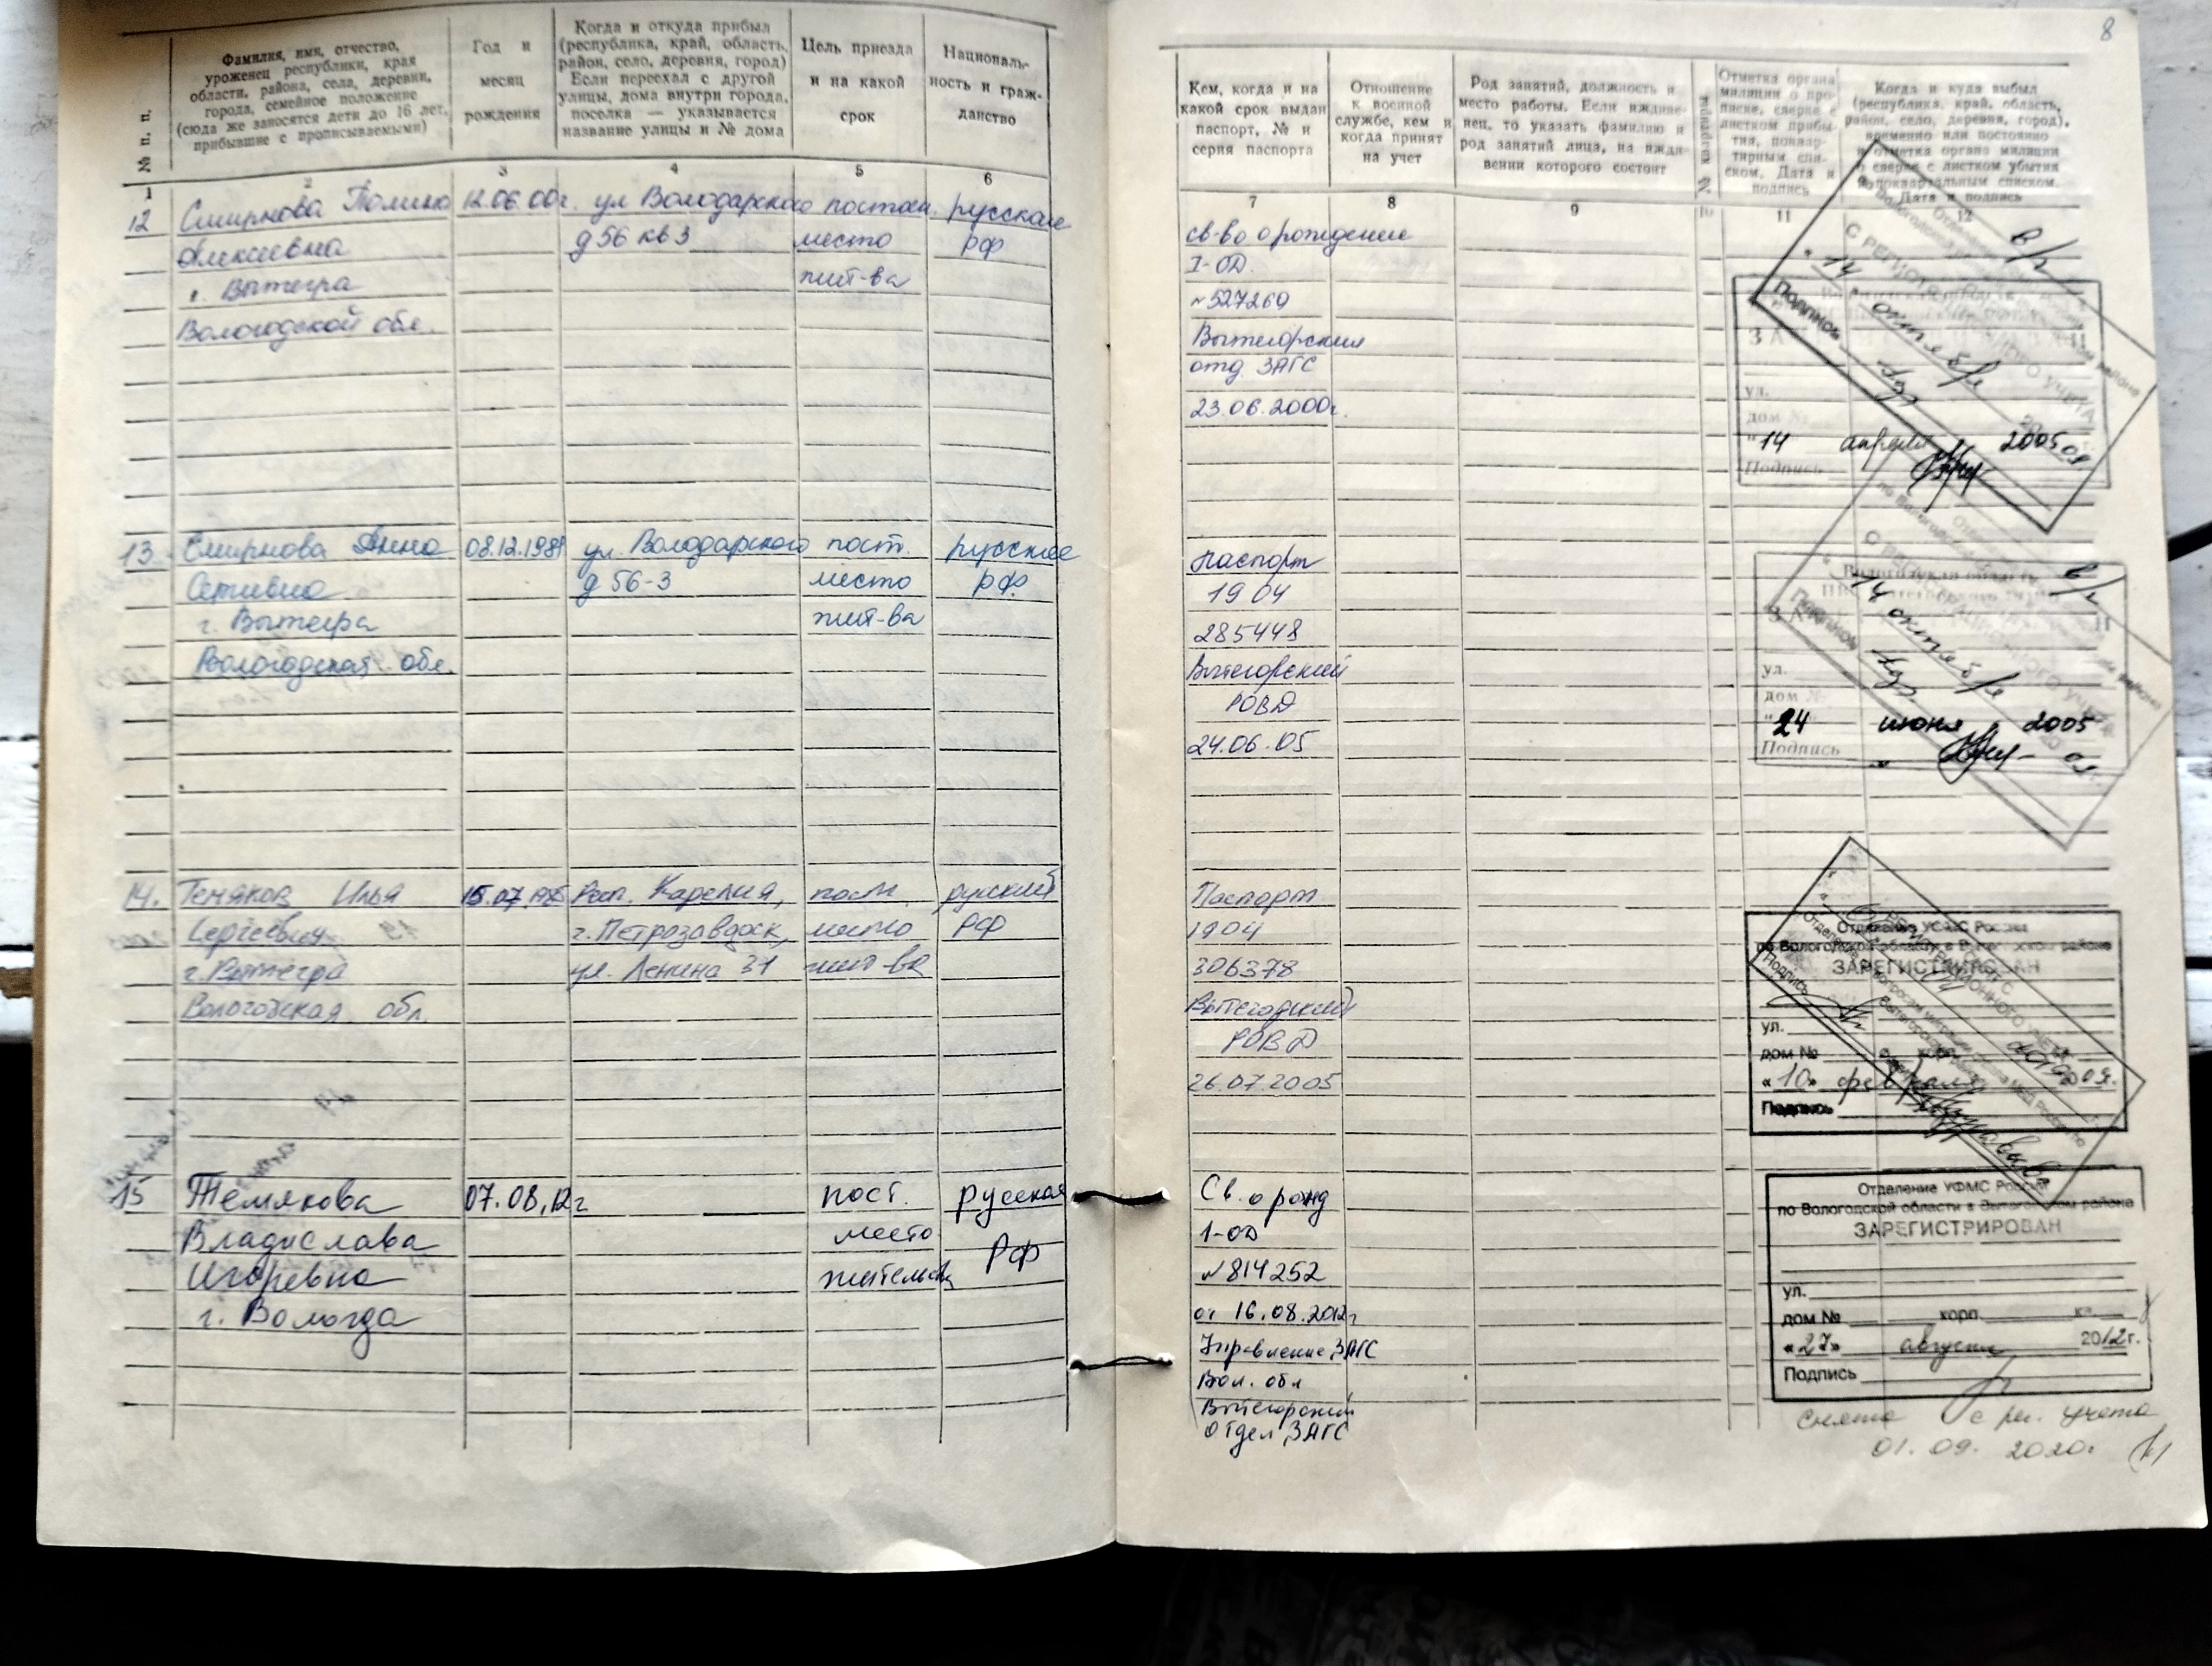 8
№ п. п.
Фамилия, имя, отчество,
уроженец республики, края
области, района, села, деревни,
города, семейное положение
(сюда же заносятся дети до 16 лет,
прибывшие с прописываемыми)
Год и
месяц
рождения
Когда и откуда прибыл
(республика, край, область,
район, село, деревня, город)
Если переехал с другой
улицы, дома внутри города,
поселка — указывается
название улицы и № дома
Цель приезда
и на какой
срок
Националь-
ность и граж-
данство
Кем, когда и на
какой срок выдан
паспорт, № и
серия паспорта
Отношение
к военной
службе, кем и
когда принят
на учет
Род занятий, должность и
место работы. Если иждиве-
нец, то указать фамилию и
род занятий лица, на ижди-
вении которого состоит
Отметка органа
милиции о про-
писке, сверке с
листком прибы-
тия, поквар-
тирным спи-
ском. Дата и
подпись
Когда и куда выбыл
(республика, край, область,
район, село, деревня, город),
временно или постоянно
и отметка органа милиции
о сверке с листком убытия
и поквартальным списком.
Дата и подпись
1 2 3 4 5 6
7 8 9 10 11 12
12 Смирнова Полина 12.06.00г. ул Володарского постоян. русская
Алексеевна д 56 кв 3 место рф
г. Вытегра жит-ва
Вологодской обл.
св-во о рождение
I-ОД
№527260
Вытегорский
отд. ЗАГС
23.06.2000г.
в/г
"14" октября
Подпись
ул.
дом №
"14 апреля 2005
Подпись
13. Смирнова Анна 08.12.198 ул. Володарского пост. русская
д 56-3 место рф.
г. Вытегра жит-ва
Вологодская обл.
паспорт
19 04
285448
Вытегорский
РОВД
24.06.05
в/г
14 октября
ул.
дом №
"24 июня 2005
Подпись
14. Темяков Илья 15.07. Респ. Карелия, пост. русский
Сергеевич г. Петрозаводск, место РФ
г. Вытегра ул. Ленина 31 жит-ва
Вологодская обл.
Паспорт
1904
306378
Вытегорский
РОВД
26.07.2005
Отделение УФМС России
по Вологодской области в Вытегорском районе
ЗАРЕГИСТРИРОВАН
ул.
дом № корп.
«10» февраля
Подпись
15 Темякова 07.08.12г пост. русская
Владислава место РФ
Игоревна жительства
г. Вологда
Св. о рожд
1-ОД
№814252
от 16.08.2012г
Управление ЗАГС
Вол. обл
Вытегорский
отдел ЗАГС
Отделение УФМС России
по Вологодской области в Вытегорском районе
ЗАРЕГИСТРИРОВАН
ул.
дом № корп. кв.
«27» августа 2012г.
Подпись
Снята с рег. учета
01.09.2020г